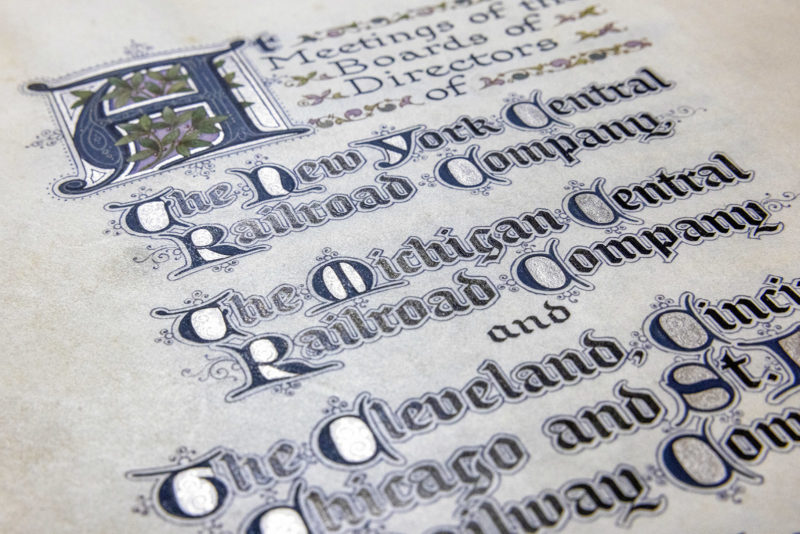 At Meetings of the
Boards of
Directors
of
The New York Central
Railroad Company,
The Michigan Central
Railroad Company
and
The Cleveland,
Chicago and St.